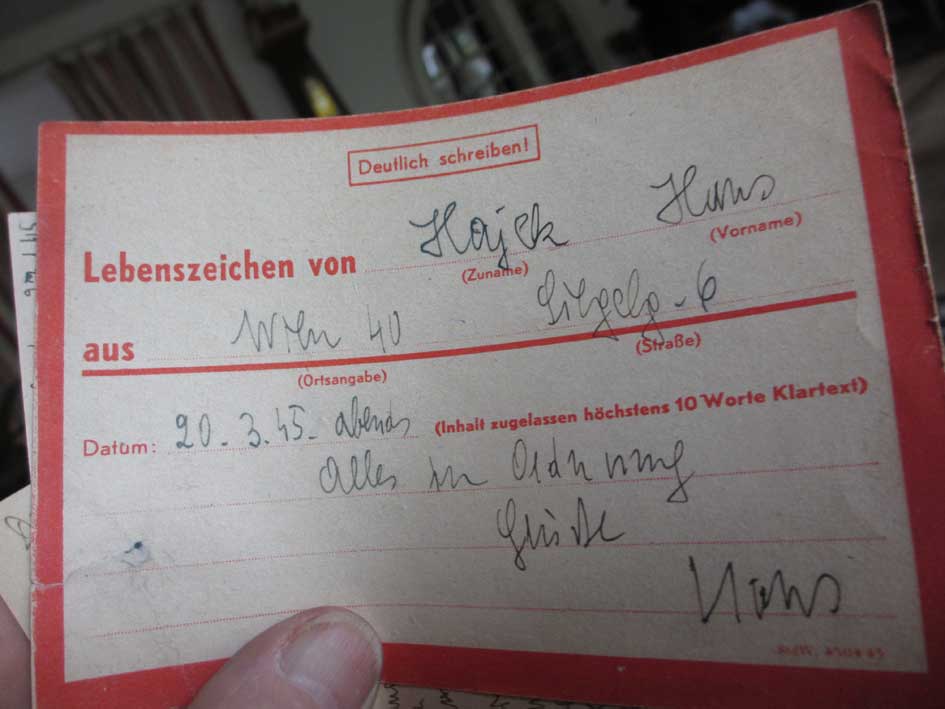 Deutlich schreiben!
Lebenszeichen von Hajek Hans
(Zuname) (Vorname)
aus Wien 40 - 6
(Ortsangabe) (Straße)
Datum: 20. 3. 45. abends (Inhalt zugelassen höchstens 10 Worte Klartext)
Alles in Ordnung
Grüße
Hans